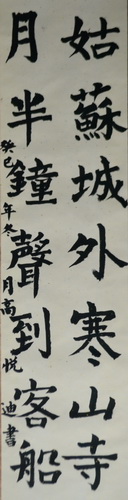 姑蘇城外寒山寺
月半鐘聲到客船
癸巳年冬月高悦迪書